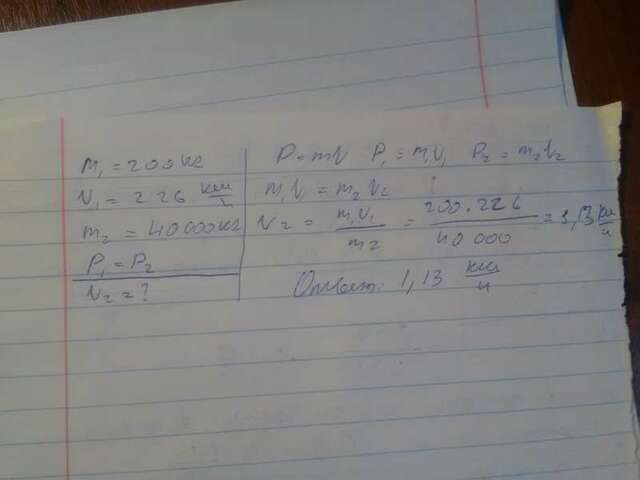 m₁ = 200 кг
V₁ = 226 км/ч
m₂ = 40 000 кг
P₁ = P₂
V₂ = ?
P = mV P₁ = m₁V₁ P₂ = m₂V₂
m₁V₁ = m₂V₂
V₂ = m₁V₁/m₂ = 200·226/40 000 = 1,13 км/ч
Ответ: 1,13 км/ч